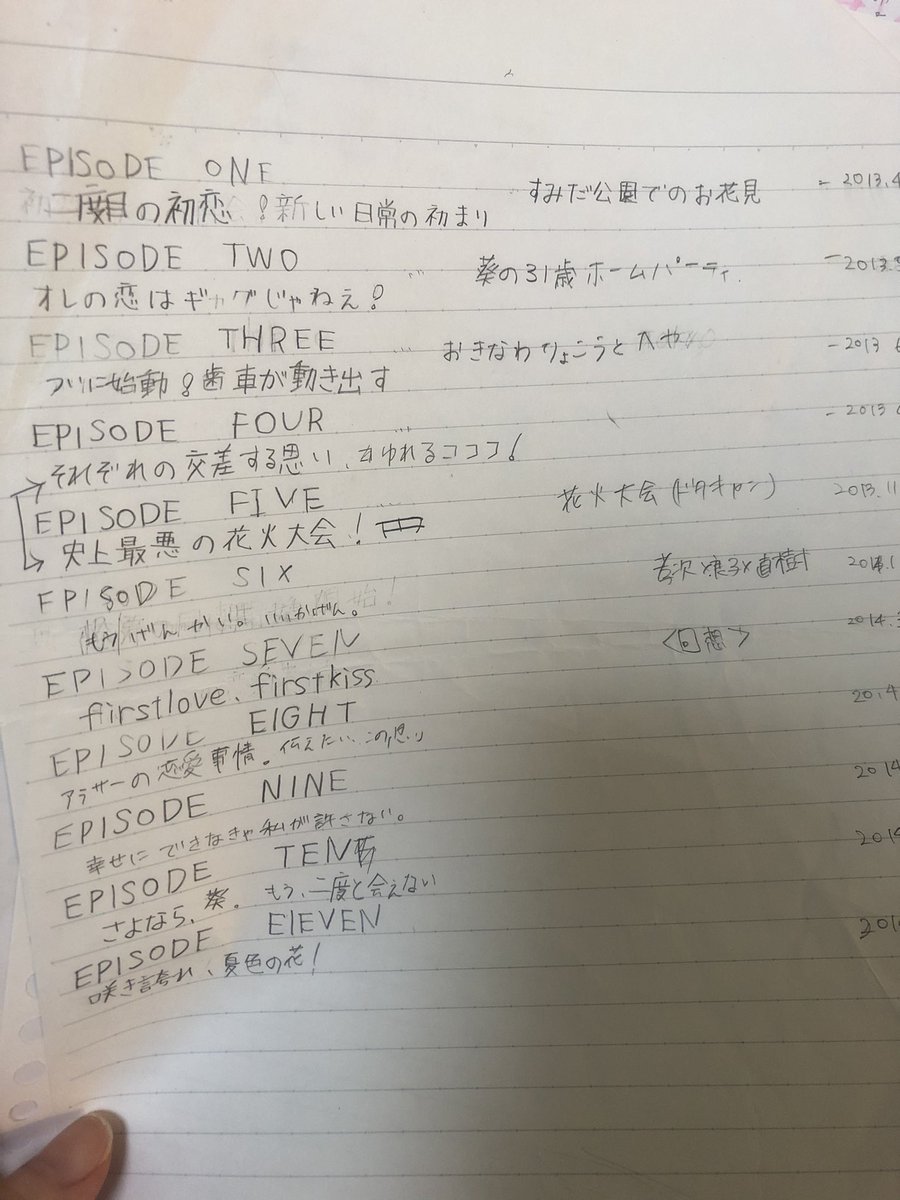 EPISODE ONE
二度目の初恋！新しい日常の初まり すみだ公園でのお花見 - 2013.4
EPISODE TWO
オレの恋はギャグじゃねぇ！ … 葵の31歳ホームパーティ. - 2013.
EPISODE THREE
ついに始動！歯車が動き出す … おきなわりょこうと へや - 2013 6
EPISODE FOUR
それぞれの交差する思い、ゆれるココロ！ … - 2013
EPISODE FIVE
史上最悪の花火大会！ … 花火大会(ドタキャン) 2013.11
EPISODE SIX
もうげんかい。いいかげん。 直樹 2014.1
EPISODE SEVEN
firstlove、firstkiss <回想> 2014.
EPISODE EIGHT
アラサーの恋愛事情。伝えたいこの思い 2014
EPISODE NINE
幸せにできなきゃ私が許さない。 2014
EPISODE TEN
さよなら、葵。もう、二度と会えない 2014
EPISODE ElEVEN
咲き誇れ、夏色の花！ 201